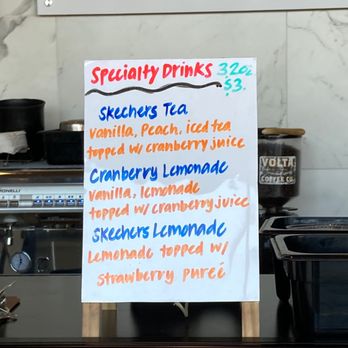 Specialty Drinks 32oz
$3.
Skechers Tea
Vanilla, Peach, iced tea
topped w/ cranberry juice
Cranberry Lemonade
Vanilla, lemonade
topped w/ cranberry juice
Skechers Lemonade
Lemonade topped w/
strawberry pureé
VOLTA
COFFEE CO.